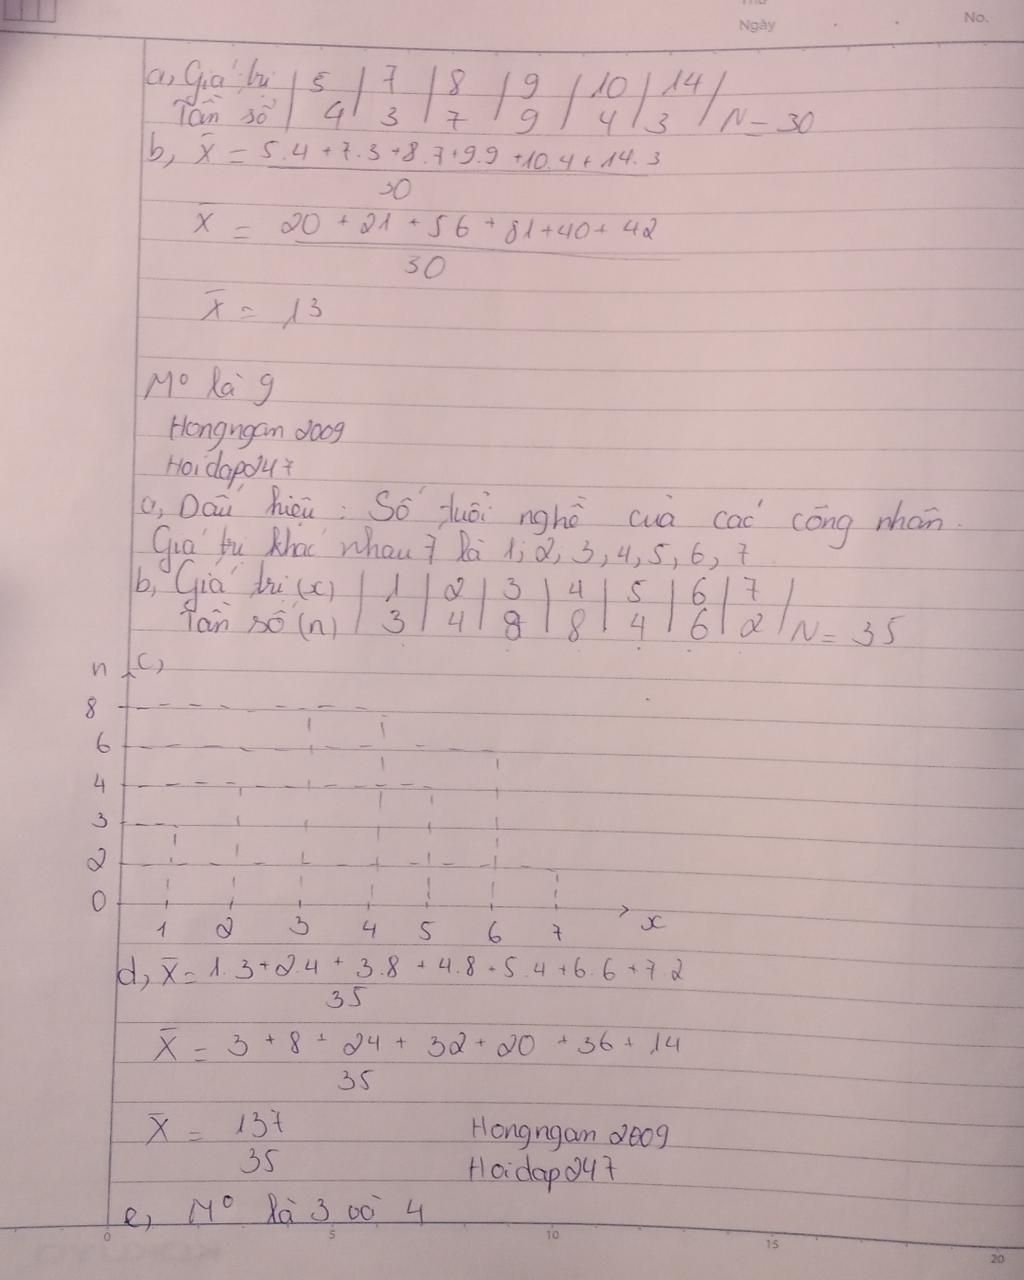 Thứ
Ngày . . No.
a, Giá trị | 5 | 7 | 8 | 9 | 10 | 14 |
Tần số | 4 | 3 | 7 | 9 | 4 | 3 | N = 30
b, X̄ = 5.4 + 7.3 + 8.7 + 9.9 + 10.4 + 14.3
30
X̄ = 20 + 21 + 56 + 81 + 40 + 42
30
X̄ = 13
M⁰ là 9
Hongngan 2009
Hoidap247
a, Dấu hiệu : Số tuổi nghề của các công nhân.
Giá trị khác nhau 7 là 1, 2, 3, 4, 5, 6, 7
b, Giá trị (x) | 1 | 2 | 3 | 4 | 5 | 6 | 7 |
Tần số (n) | 3 | 4 | 8 | 8 | 4 | 6 | 2 | N = 35
n c,
8
6
4
3
2
0
1 2 3 4 5 6 7 x
d, X̄ = 1.3 + 2.4 + 3.8 + 4.8 + 5.4 + 6.6 + 7.2
35
X̄ = 3 + 8 + 24 + 32 + 20 + 36 + 14
35
X̄ = 137 Hongngan 2009
35 Hoidap247
e, M⁰ là 3 và 4
0 5 10 15 20